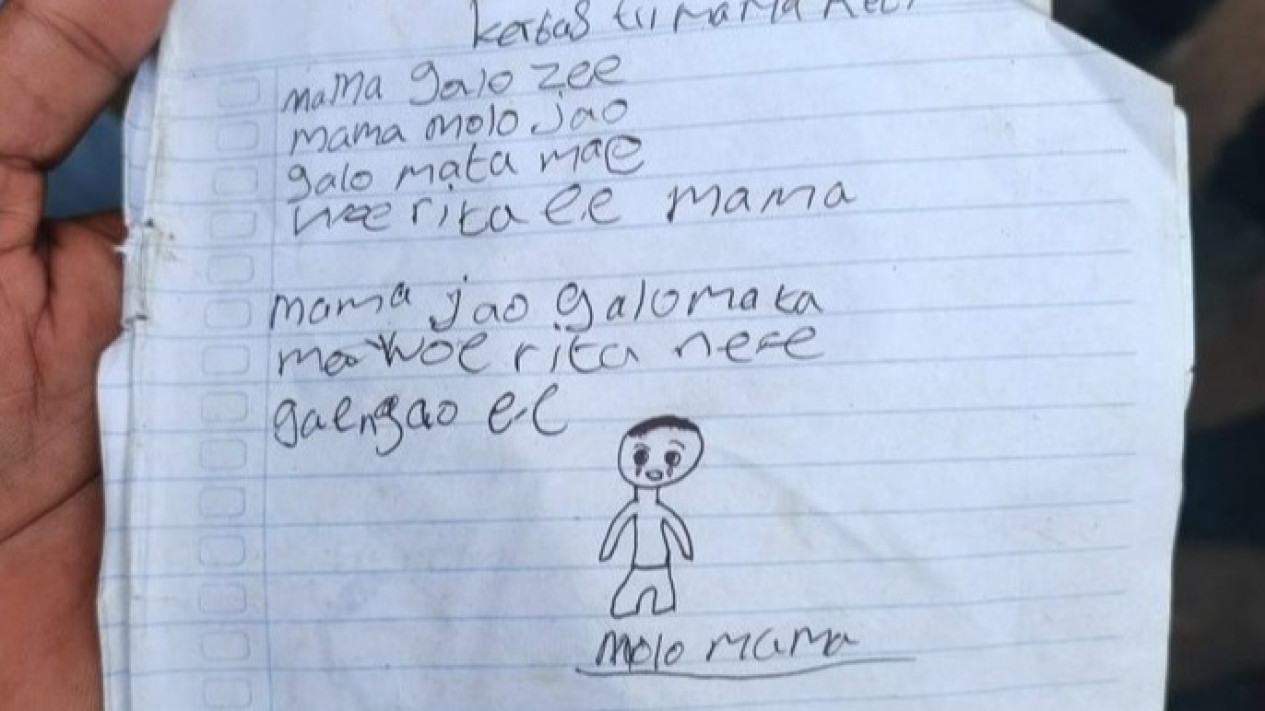 kertas tii mama reti
mama galo zee
mama molo jao
galo mata mae
woe rita ee mama
mama jao galo mata
mae woe rita ne e e
gae ngao e e
molo mama